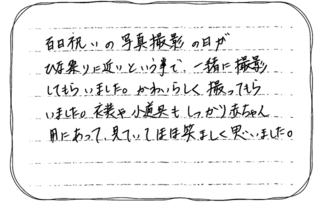 百日祝いの写真撮影の日が
ひな祭りに近いという事で、一緒に撮影
してもらいました。かわいらしく撮ってもら
いました。衣装や小道具もしっかり赤ちゃん
用にあって、見ていてほほ笑ましく思いました。